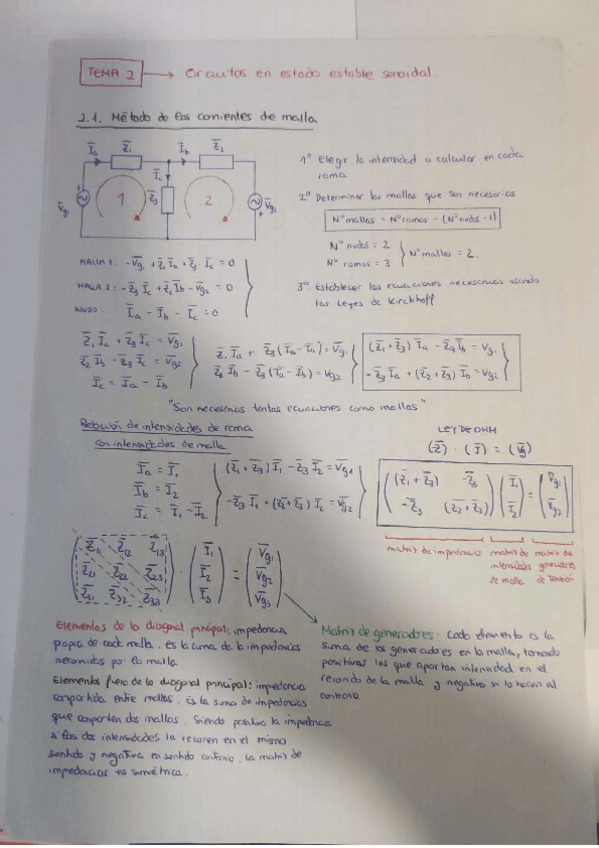 TEMA 2 → Circuitos en estado estable senoidal
2.1. Método de las corrientes de malla
I̅a Z̅1 I̅b Z̅2
I̅c
V̅g1 1 Z̅3 2 V̅g2
1º Elegir la intensidad a calcular en cada
rama
2º Determinar las mallas que son necesarias
Nº mallas = Nº ramas - (Nº nudos - 1)
Nº nudos = 2
Nº ramas = 3 } Nº mallas = 2.
3º Establecer las ecuaciones necesarias usando
las Leyes de Kirchhoff
MALLA 1: -V̅g1 + Z̅1 I̅a + Z̅3 I̅c = 0
MALLA 2: -Z̅3 I̅c + Z̅2 I̅b - V̅g2 = 0
NUDO: I̅a - I̅b - I̅c = 0
Z̅1 I̅a + Z̅3 I̅c = V̅g1
Z̅2 I̅b - Z̅3 I̅c = V̅g2
I̅c = I̅a - I̅b
Z̅1 I̅a + Z̅3 (I̅a - I̅b) = V̅g1
Z̅2 I̅b - Z̅3 (I̅a - I̅b) = V̅g2
(Z̅1 + Z̅3) I̅a - Z̅3 I̅b = V̅g1
-Z̅3 I̅a + (Z̅2 + Z̅3) I̅b = V̅g2
"Son necesarias tantas ecuaciones como mallas"
Relación de intensidades de rama
con intensidades de malla
LEY DE OHM
(Z̅) · (I̅) = (V̅g)
I̅a = I̅1
I̅b = I̅2
I̅c = I̅1 - I̅2
(Z̅1 + Z̅3) I̅1 - Z̅3 I̅2 = V̅g1
-Z̅3 I̅1 + (Z̅2 + Z̅3) I̅2 = V̅g2
(Z̅1 + Z̅3) -Z̅3 I̅1 = V̅g1
-Z̅3 (Z̅2 + Z̅3) I̅2 V̅g2
matriz de impedancias
matriz de intensidades de malla
matriz de generadores de tensión
Z̅11 Z̅12 Z̅13 I̅1 V̅g1
Z̅21 Z̅22 Z̅23 · I̅2 = V̅g2
Z̅31 Z̅32 Z̅33 I̅3 V̅g3
Elementos de la diagonal principal: impedancia
propia de cada malla. Es la suma de la impedancias
recorridas por la malla.
Elementos fuera de la diagonal principal: impedancia
compartida entre mallas. Es la suma de impedancias
que comparten dos mallas. Siendo positivo la impedancia
si las dos intensidades la recorren en el mismo
sentido y negativa en sentido contrario. La matriz de
impedancias es simétrica.
Matriz de generadores: Cada elemento es la
suma de los generadores en la malla, tomando
positivas los que aportan intensidad en el
recorrido de la malla y negativo si lo hacen al
contrario